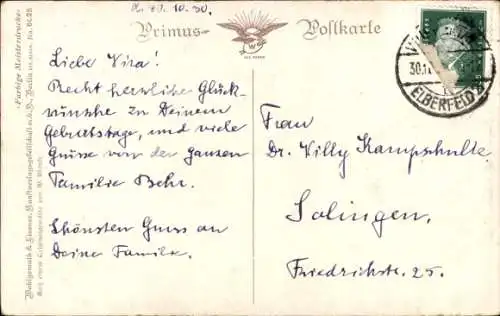 30.10.30.
Primus-Postkarte
Liebe Vira!
Recht herzliche Glück-
wünsche zu Deinem
Geburtstage, und viele
Grüsse von der ganzen
Familie Behr.
Schönsten Gruss an
Deine Familie.
Frau
Dr. Willy Kampschulte
Solingen,
Friedrichstr. 25.
30.1
ELBERFELD
"Farbige Meisterdrucke"
Wohlgemuth & Lissner, Kunstverlagsgesellschaft m.b.H., Berlin